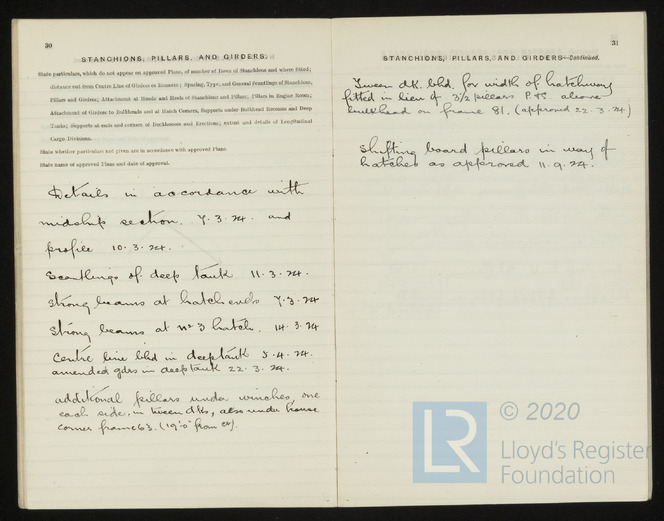 30
STANCHIONS, PILLARS, AND GIRDERS.
State particulars, which do not appear on approved Plans, of number of Rows of Stanchions and where fitted;
distance out from Centre Line of Girders or Runners; Spacing, Type, and General Scantlings of Stanchions,
Pillars and Girders; Attachment at Heads and Heels of Stanchions and Pillars; Pillars in Engine Room;
Attachment of Girders to Bulkheads and at Hatch Corners, Supports under Bulkhead Recesses and Deep
Tanks; Supports at ends and corners of Deckhouses and Erections; extent and details of Longitudinal
Cargo Divisions.
State whether particulars not given are in accordance with approved Plans.
State name of approved Plans and date of approval.
Details in accordance with
midship section 7.3.24. and
profile 10.3.24.
Scantlings of deep tank 11.3.24.
Strong beams at hatch ends 7.3.24
Strong beams at No 3 hatch. 14.3.24
Centre line bhd in deep tank 5.4.24.
amended gdrs in deep tank 22.3.24.
additional pillars under winches, one
each side, in tween dks, also under house
corner frame 63. (19'0" from ).
31
STANCHIONS, PILLARS, AND GIRDERS—Continued.
Tween dk. bhd. for width of hatchway
fitted in lieu of 3½ pillars P & S. above
bulkhead on frame 81. (approved 22.3.24)
Shifting board pillars in way of
hatches as approved 11.9.24.
© 2020
LR
Lloyd's Register
Foundation